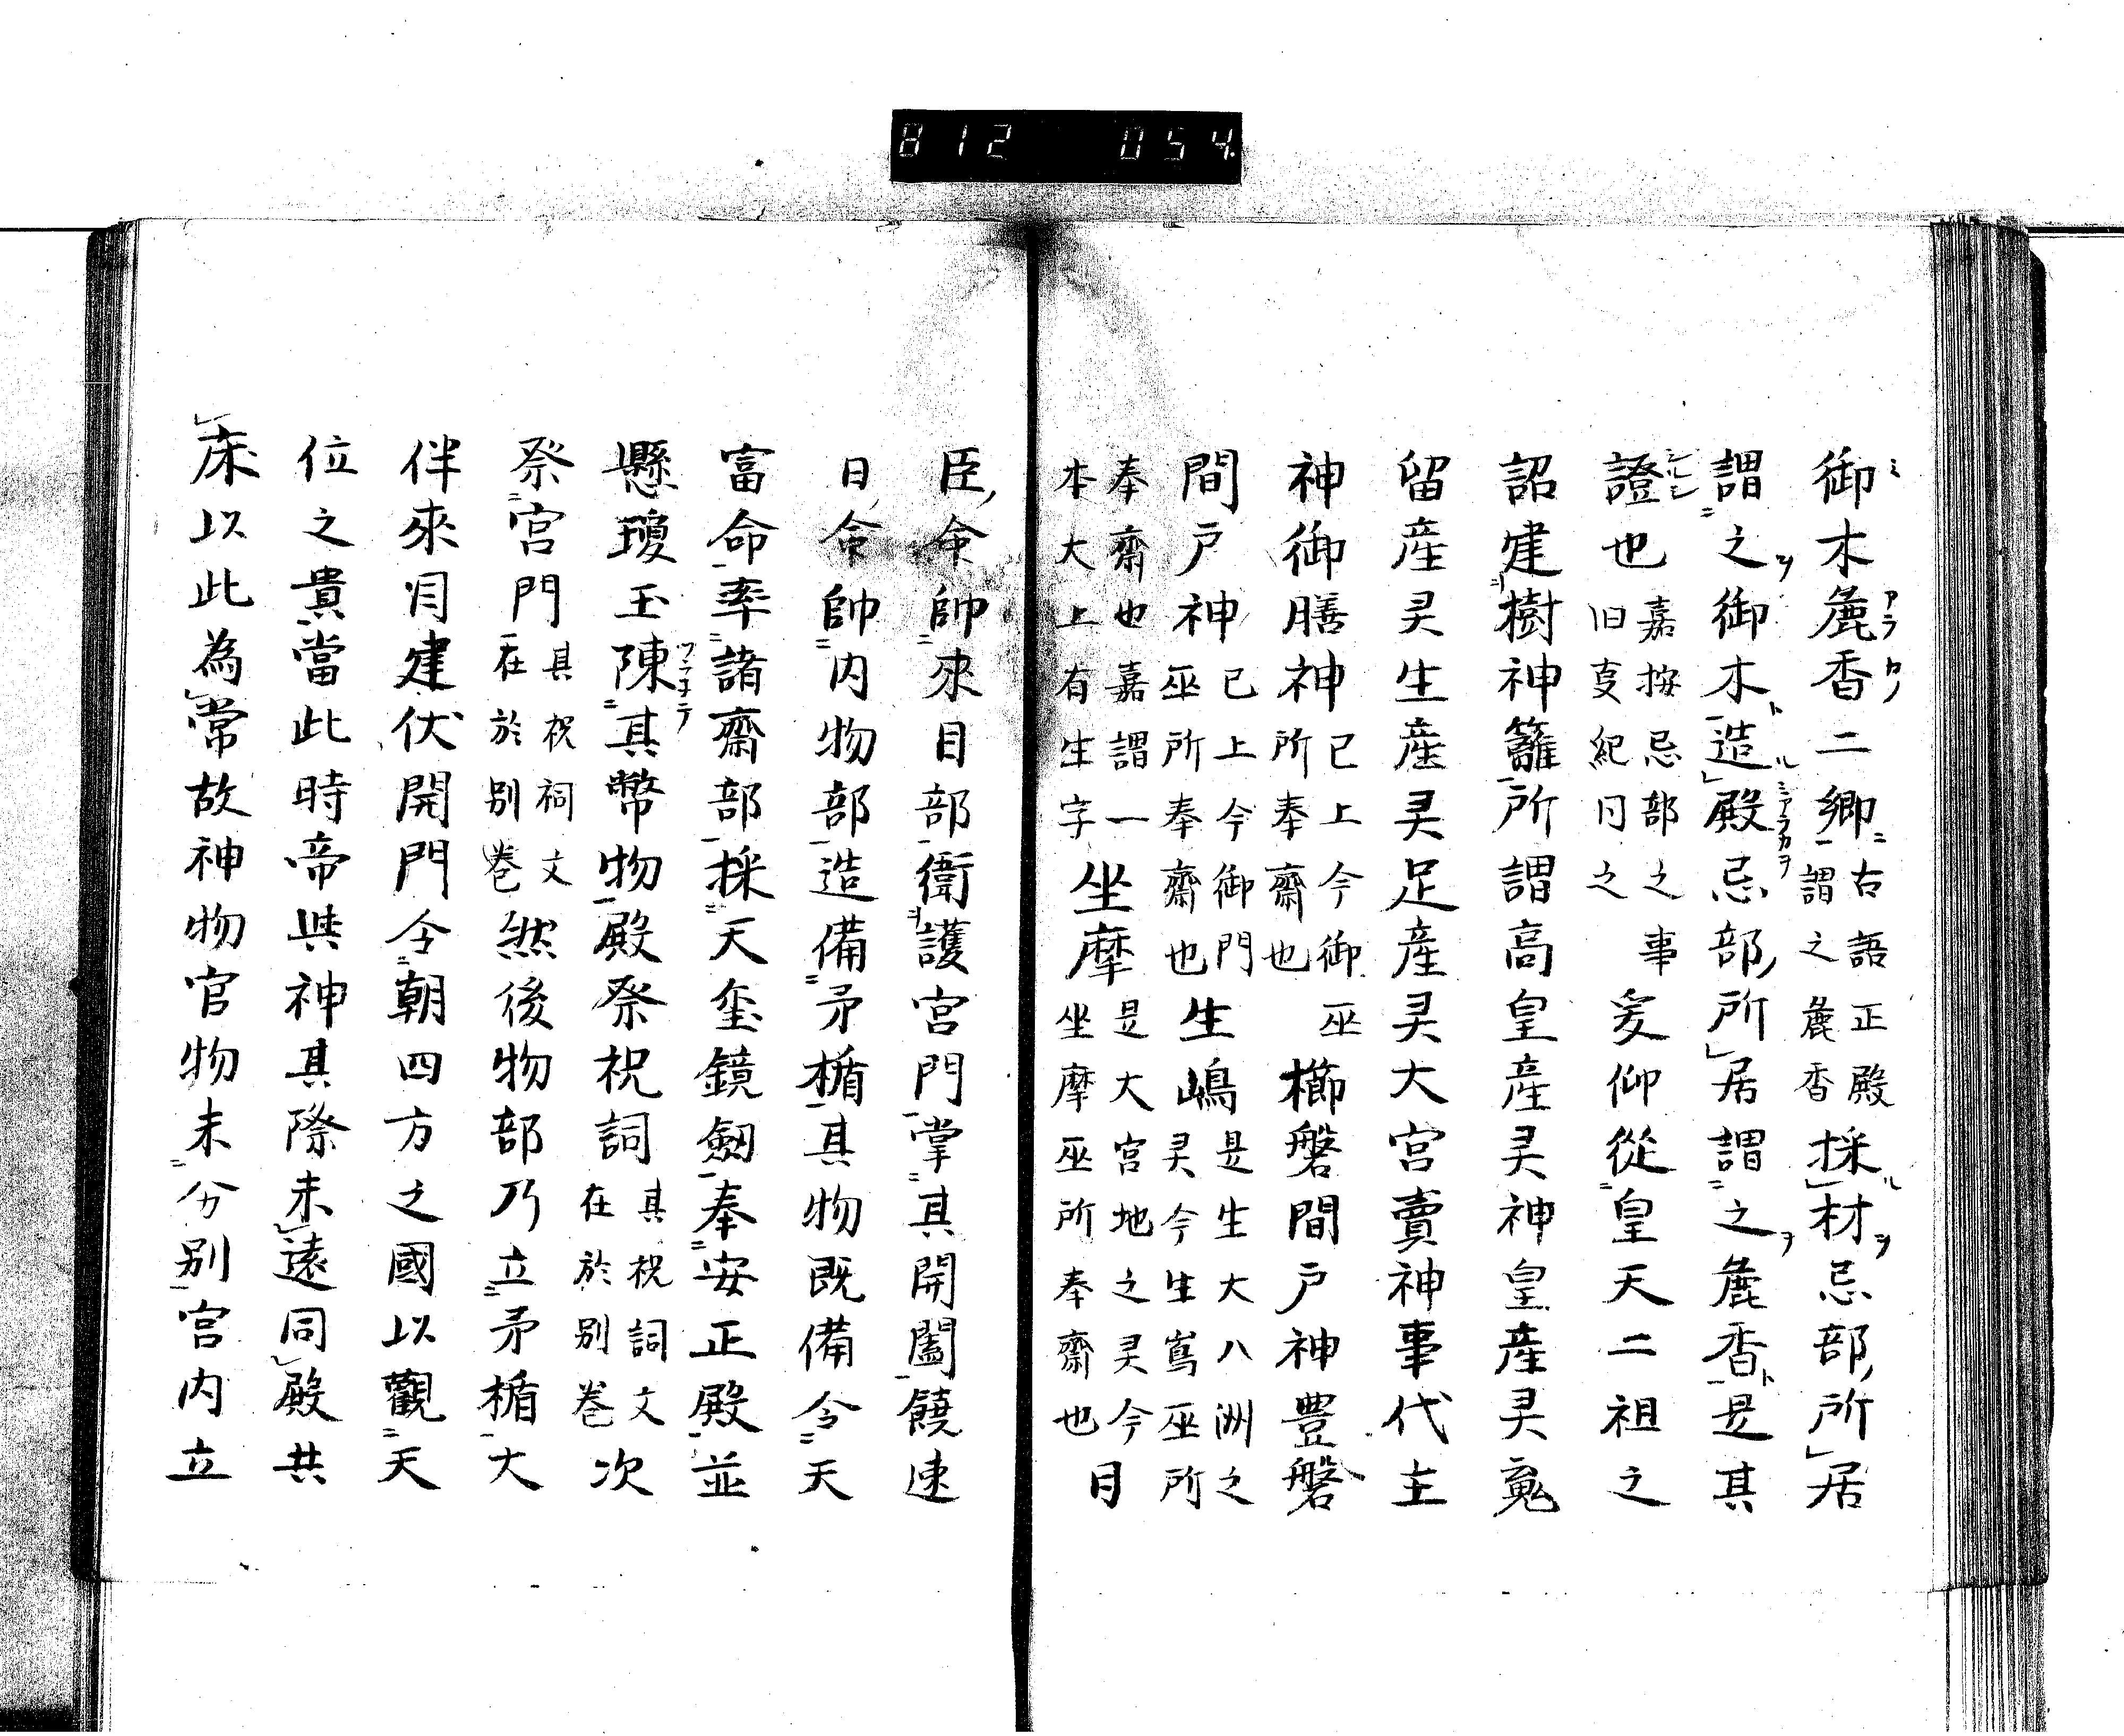 812 054
御木麁香二鄉古語正殿謂之麁香採材忌部所居
謂之御木造殿忌部所居謂之麁香是其
證也嘉按忌部之事旧叓紀同之爰仰從皇天二祖之
詔建樹神籬所謂高皇産灵神皇産灵䰟
留産灵生産灵足産灵大宮賣神事代主
神御膳神已上今御巫所奉齋也櫛磐間戸神豊磐
間戸神已上今御門巫所奉齋也生嶋是生大八洲之灵今生嶌巫所
奉齋也嘉謂一本大上有生字坐摩是大宮地之灵今坐摩巫所奉齋也日
臣命帥來目部衛護宮門掌其開闔饒速
日命帥内物部造備矛楯其物既備令天
富命率諸齋部採天璽鏡劔奉安正殿並
懸瓊玉陳其幣物殿祭祝詞其祝詞文在於別巻次
祭宮門其祝祠文在於別巻然後物部乃立矛楯大
伴來目建伏開門令朝四方之國以觀天
位之貴當此時帝與神其際未遠同殿共
床以此為常故神物官物未分別宮内立